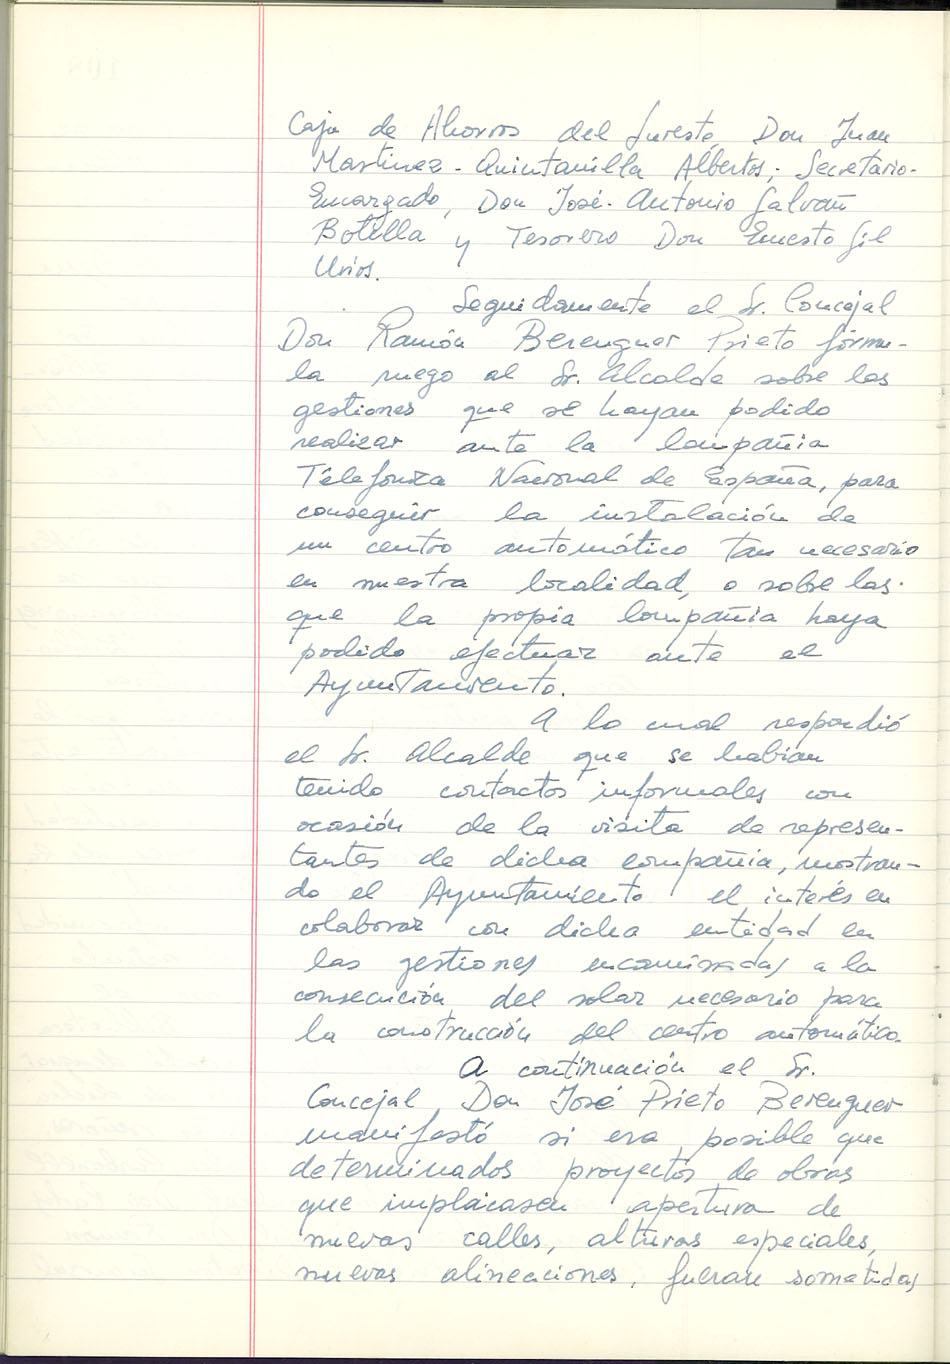 Caja de Ahorros del Sureste, Don Juan
Martinez-Quintanilla Albertos; Secretario-
Encargado, Don José-Antonio Galvañ
Botella y Tesorero Don Ernesto Gil
Urios.
Seguidamente el Sr. Concejal
Don Ramón Berenguer Prieto fórmu-
la ruego al Sr. Alcalde sobre las
gestiones que se hayan podido
realizar ante la Compañia
Télefonica Nacional de España, para
conseguir la instalación de
un centro automático tan necesario
en nuestra localidad, o sobre las
que la propia Compañia haya
podido efectuar ante el
Ayuntamiento.
A lo cual respondió
el Sr. Alcalde que se habian
tenido contactos informales con
ocasión de la visita de represen-
tantes de dicha compañia, mostran-
do el Ayuntamiento el interés en
colaborar con dicha entidad en
las gestiones encaminadas a la
consecución del solar necesario para
la construcción del centro automático.
A continuación el Sr.
Concejal Don José Prieto Berenguer
manifestó si era posible que
determinados proyectos de obras
que implicasen apertura de
nuevas calles, alturas especiales,
nuevas alineaciones, fueran sometidas